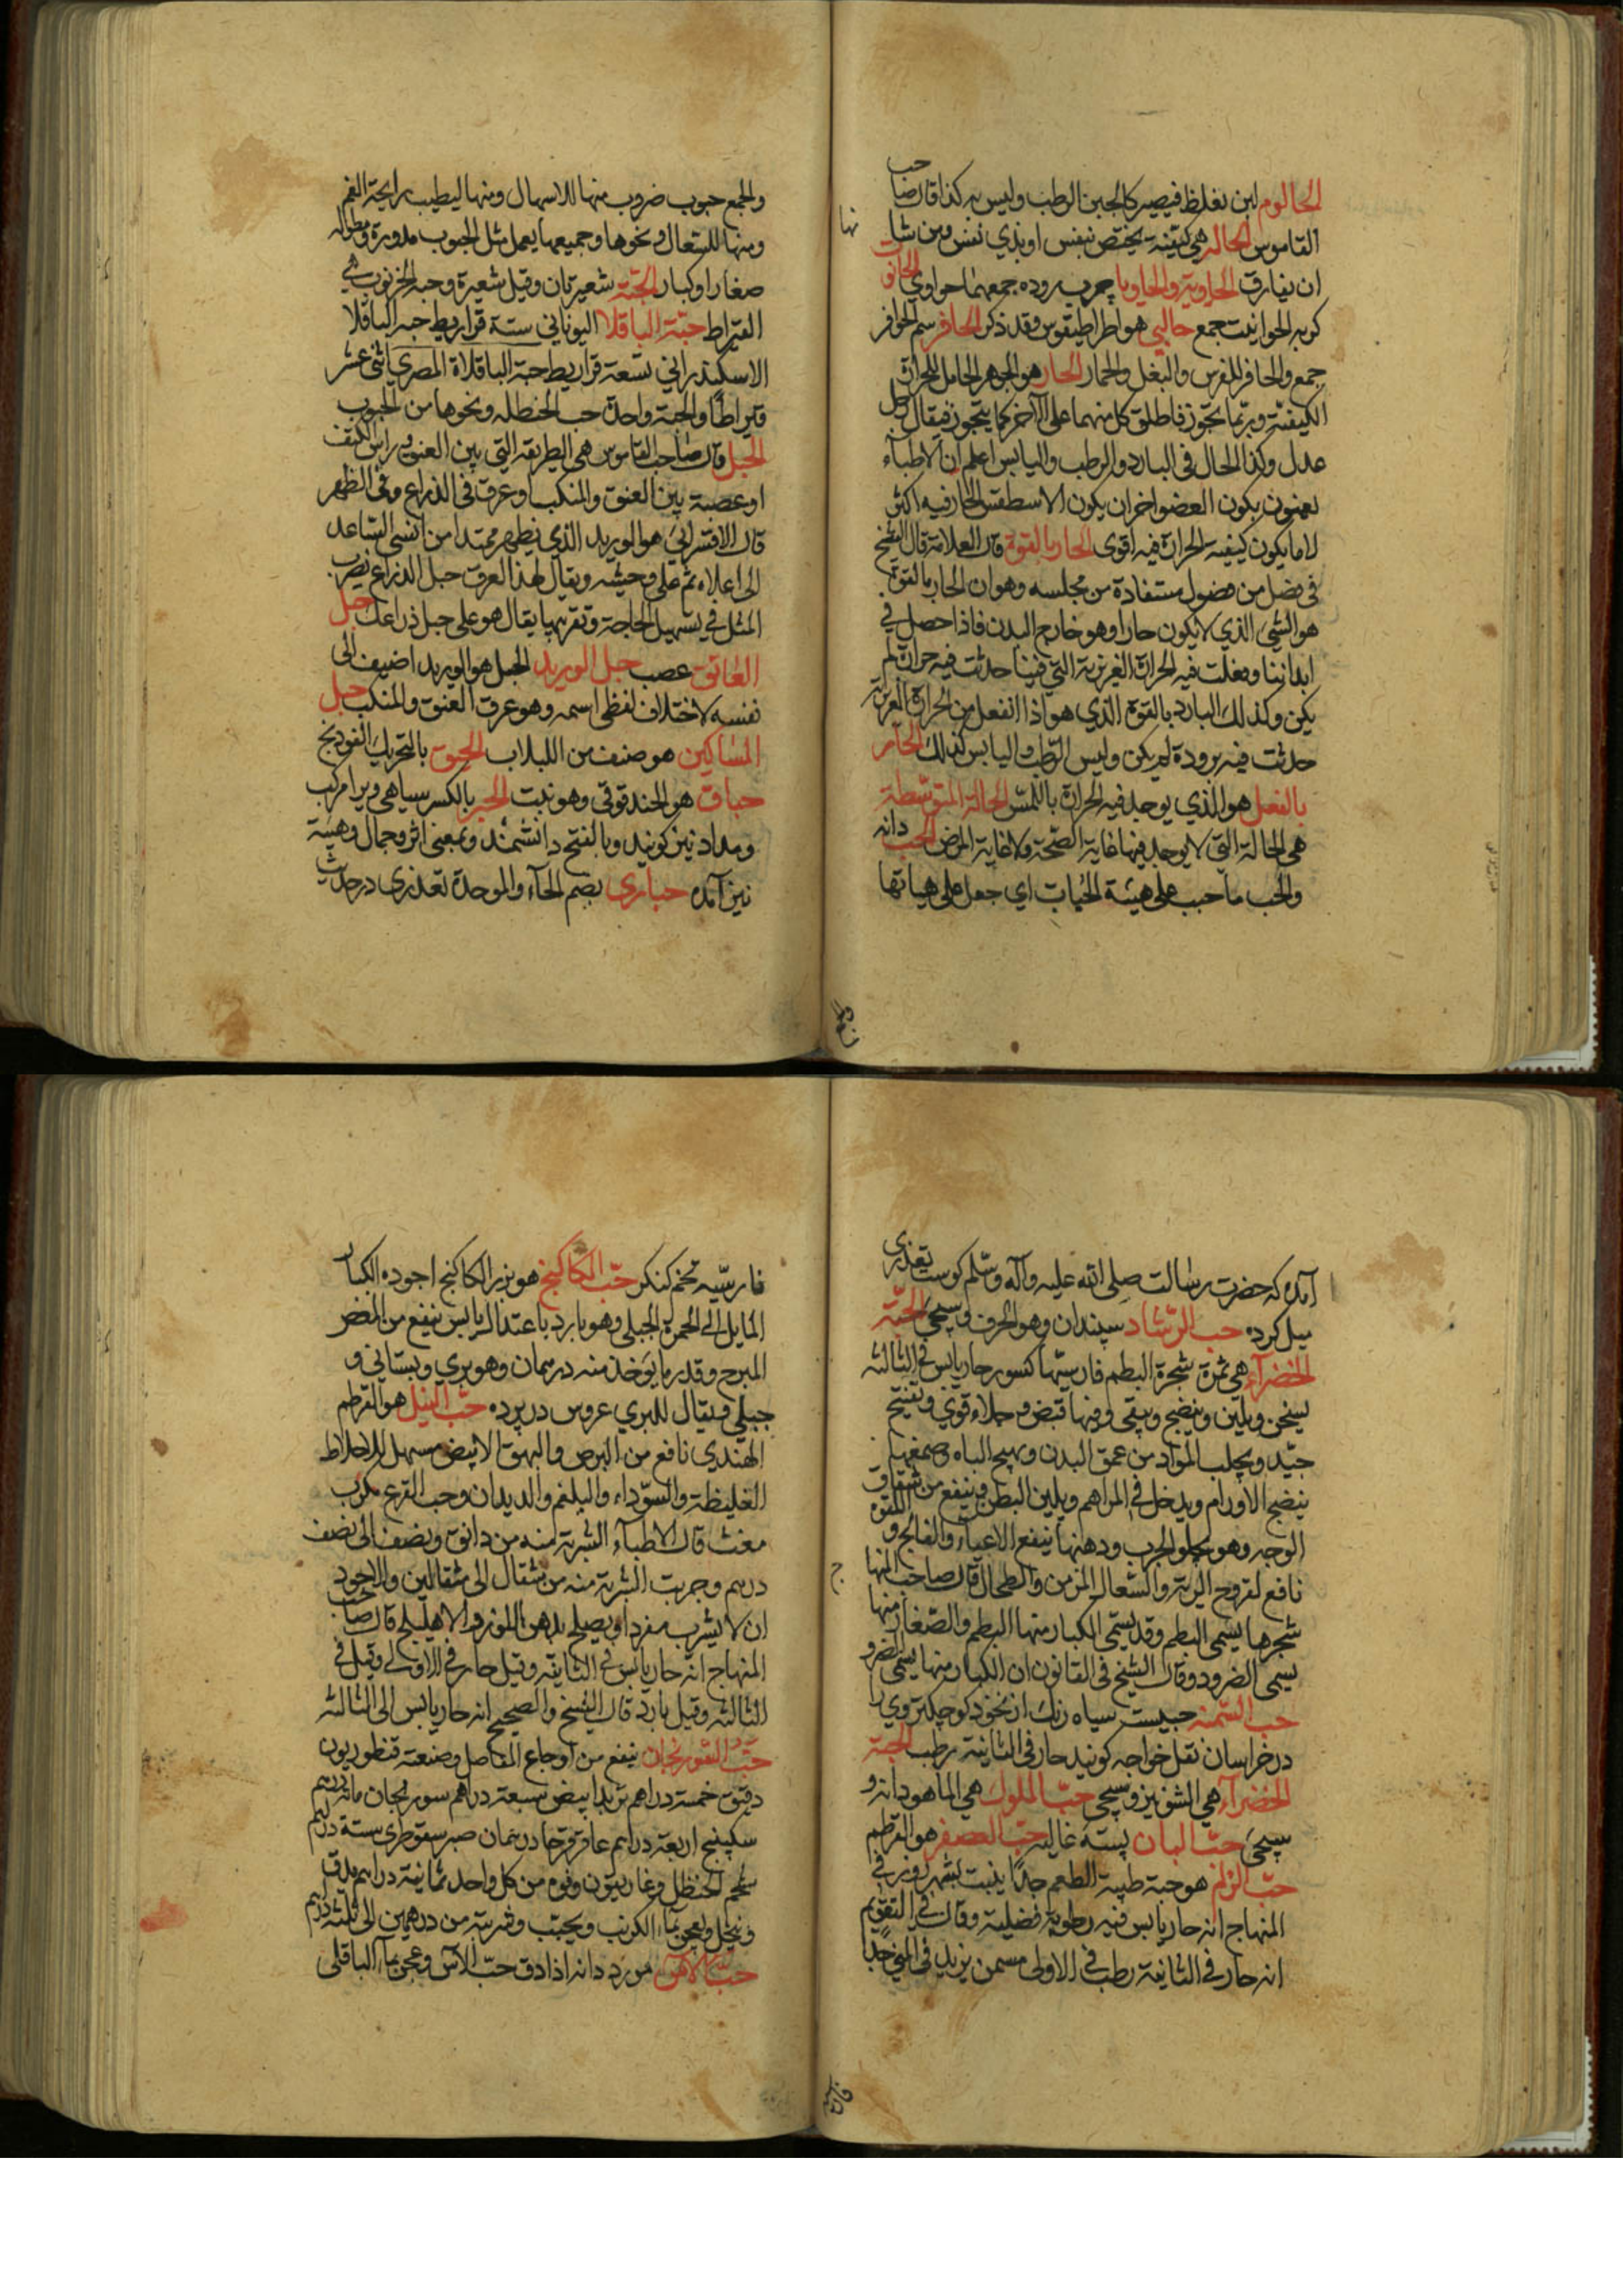 الحالوم لبن يغلظ فيصير كالجبن الرطب وليس به كذا قال صاحب
القاموس الحاله هي كيفية يختص بنفس او بذي نفس ومن شانها
ان يفارق الحاوية والحاويا چرب روده جمعهما حواوي الحانوت
كربه الحوانيت جمع حالبي هو اطراطيقوس وقد ذكر الحافر سم الحوافر
جمع والحافر للفرس والبغل والحمار الحار هو الجوهر الحامل للحرارة
الكيفية وربما يتجوز فاطلق كل منهما على الآخر كما يتجوز فيقال رجل
عدل وكذا الحال في البارد والرطب واليابس اعلم ان الاطباء
يعنون بكون العضو احر ان يكون الاسطقس الحار فيه اكثر
لا ما يكون كيفية الحرارة فيه اقوى الحار بالقوة قال العلامة قال الشيخ
في فصل من فصول مستفادة من مجلسه وهو ان الحار بالقوة
هو الشيء الذي لا يكون حارا وهو خارج البدن فاذا حصل في
ابداننا وفعلت فيه الحرارة الغريزية التي فينا حدثت فيه حرارة لم
يكن وكذلك البارد بالقوة الذي هو اذا انفعل من الحرارة الغريزية
حدثت فيه برودة لم يكن وليس الرطب واليابس كذلك الحار
بالفعل هو الذي يوجد فيه الحرارة باللمس الحالة المتوسطة
هي الحالة التي لا يوجد فيها غاية الصحة ولا غاية المرض الحب دانه
والحب ما حبب على هيئة الحبات اي جعل على هياتها
والجمع حبوب ضروب منها للاسهال ومنها ليطيب رايحة الفم
ومنها للسعال ونحوها وجميعها يعمل مثل الحبوب مدورة ومطوله
صغارا وكبارا الحبة شعيرتان وقيل شعيرة وحبة الخرنوب هي
القيراط حبة الباقلا اليوناني ستة قراريط حبة الباقلا
الاسكندراني تسعة قراريط حبة الباقلاة المصري اثني عشر
قيراطا والحبة واحدة حب الحنطله ونحوها من الحبوب
الحبل قال صاحب القاموس هي الطريقة التي بين العنق وراس الكتف
او عصبة بين العنق والمنكب او عرق في الذراع وفي الظهر
قال الاقسرائي هو الوريد الذي يظهر ممتدا من انسي الساعد
الى اعلاه ثم على وحشيه ويقال لهذا العرق حبل الذراع يضرب
المثل في تسهيل الحاجة وتقريبها يقال هو على حبل ذراعك حبل
العاتق عصب حبل الوريد الحبل هو الوريد اضيف الى
نفسه لاختلاف لفظي اسمه وهو عرق العنق والمنكب حبل
المساكين هو صنف من اللبلاب الحبق بالتحريك الفودنج
حباق هو الحندقوقي وهو نبت الحبر بالكسر سياهي ويرا مركب
ومداد نيز كويند وبالفتح دانشمند وبمعنى اثر وجمال وهيئة
نيز آمده حبارى بضم الحاء والموحدة تعذرى درحديث
آمده كه حضرت رسالت صلى الله عليه وآله وسلم كوست تعذرى
ميل كرده حب الرشاد سپندان وهو الحرف وسيجيء الحبة
الخضراء هي ثمرة شجرة البطم فارسيتها كسور حار يابس في الثالثة
يسخن ويلين وينضج وينقي وفيها قبض وجلاء قوي وتفتيح
جيد ويجلب المواد من عمق البدن ويهيج الباه وصمغها
ينضج الاورام ويدخل في المراهم ويلين البطن وينفع من شقاق
الوجه وهو يجلو الجرب ودهنها ينفع الاعياء والفالج واللقوه
نافع لقروح الرية والسعال المزمن والطحال قال صاحب المنهاج
شجرها يسمى البطم وقد يسمى الكبار منها البطم والصغار منها
يسمى الضرو وقال الشيخ في القانون ان الكبار منها يسمى الضرو
حب السمنه حبيست سياه رنك از نخود كوچكتر وي را
در خراسان نقل خواجه كويند حار في الثانية رطب الحبة
الخضراء هي الشونيز وسيجيء حب الملوك هي الماهودانه و
سيجيء حب البان پسته غاليه حب العصفر هو القرطم
حب الزلم هو حبة طيبة الطعم جدا ينبت بشهرزور في
المنهاج انه حار يابس فيه رطوبة فضلية وقال في التقويم
انه حار في الثانية رطب في الاولى مسمن يزيد في المني جدا
فارسيه تخم كنكر حب الكاكنج هو بزر الكاكنج اجوده الكبار
المايل الى الحمرة الجبلي وهو بارد باعتدال يابس ينفع من المغص
المبرح وقدر ما يوخذ منه درهمان وهو بري وبستاني و
جبلي ويقال للبري عروس در پرده حب النيل هو القرطم
الهندي نافع من البرص والبهق الابيض مسهل للاخلاط
الغليظة والسوداء والبلغم والديدان وحب القرع مكرب
مغث قال الاطباء الشربة منه من دانق ونصف الى نصف
درهم وجربت الشربة منه من مثقال الى مثقالين والاجود
ان لا يشرب مفردا ويصلح بدهن اللوز والاهليلج قال صاحب
المنهاج انه حار يابس في الثانية وقيل حار في الاولى وقيل في
الثالثه وقيل بارد قال الشيخ والصحيح انه حار يابس الى الثالثه
حب السورنجان ينفع من اوجاع المفاصل وصنعته قنطوريون
دقيق خمسة دراهم تربد ابيض سبعة دراهم سورنجان مائة درهم
سكبينج اربعة دراهم عاقرقرحا درهمان صبر سقوطري ستة درهم
شحم الحنظل وغاريقون وفوه من كل واحد ثمانية دراهم يدق
وينخل ويعجن بماء الكرنب ويحبب وشربته من درهمين الى ثلثة درهم
حب الآس مورد دانه اذا دق حب الآس وعجن بماء الباقلى